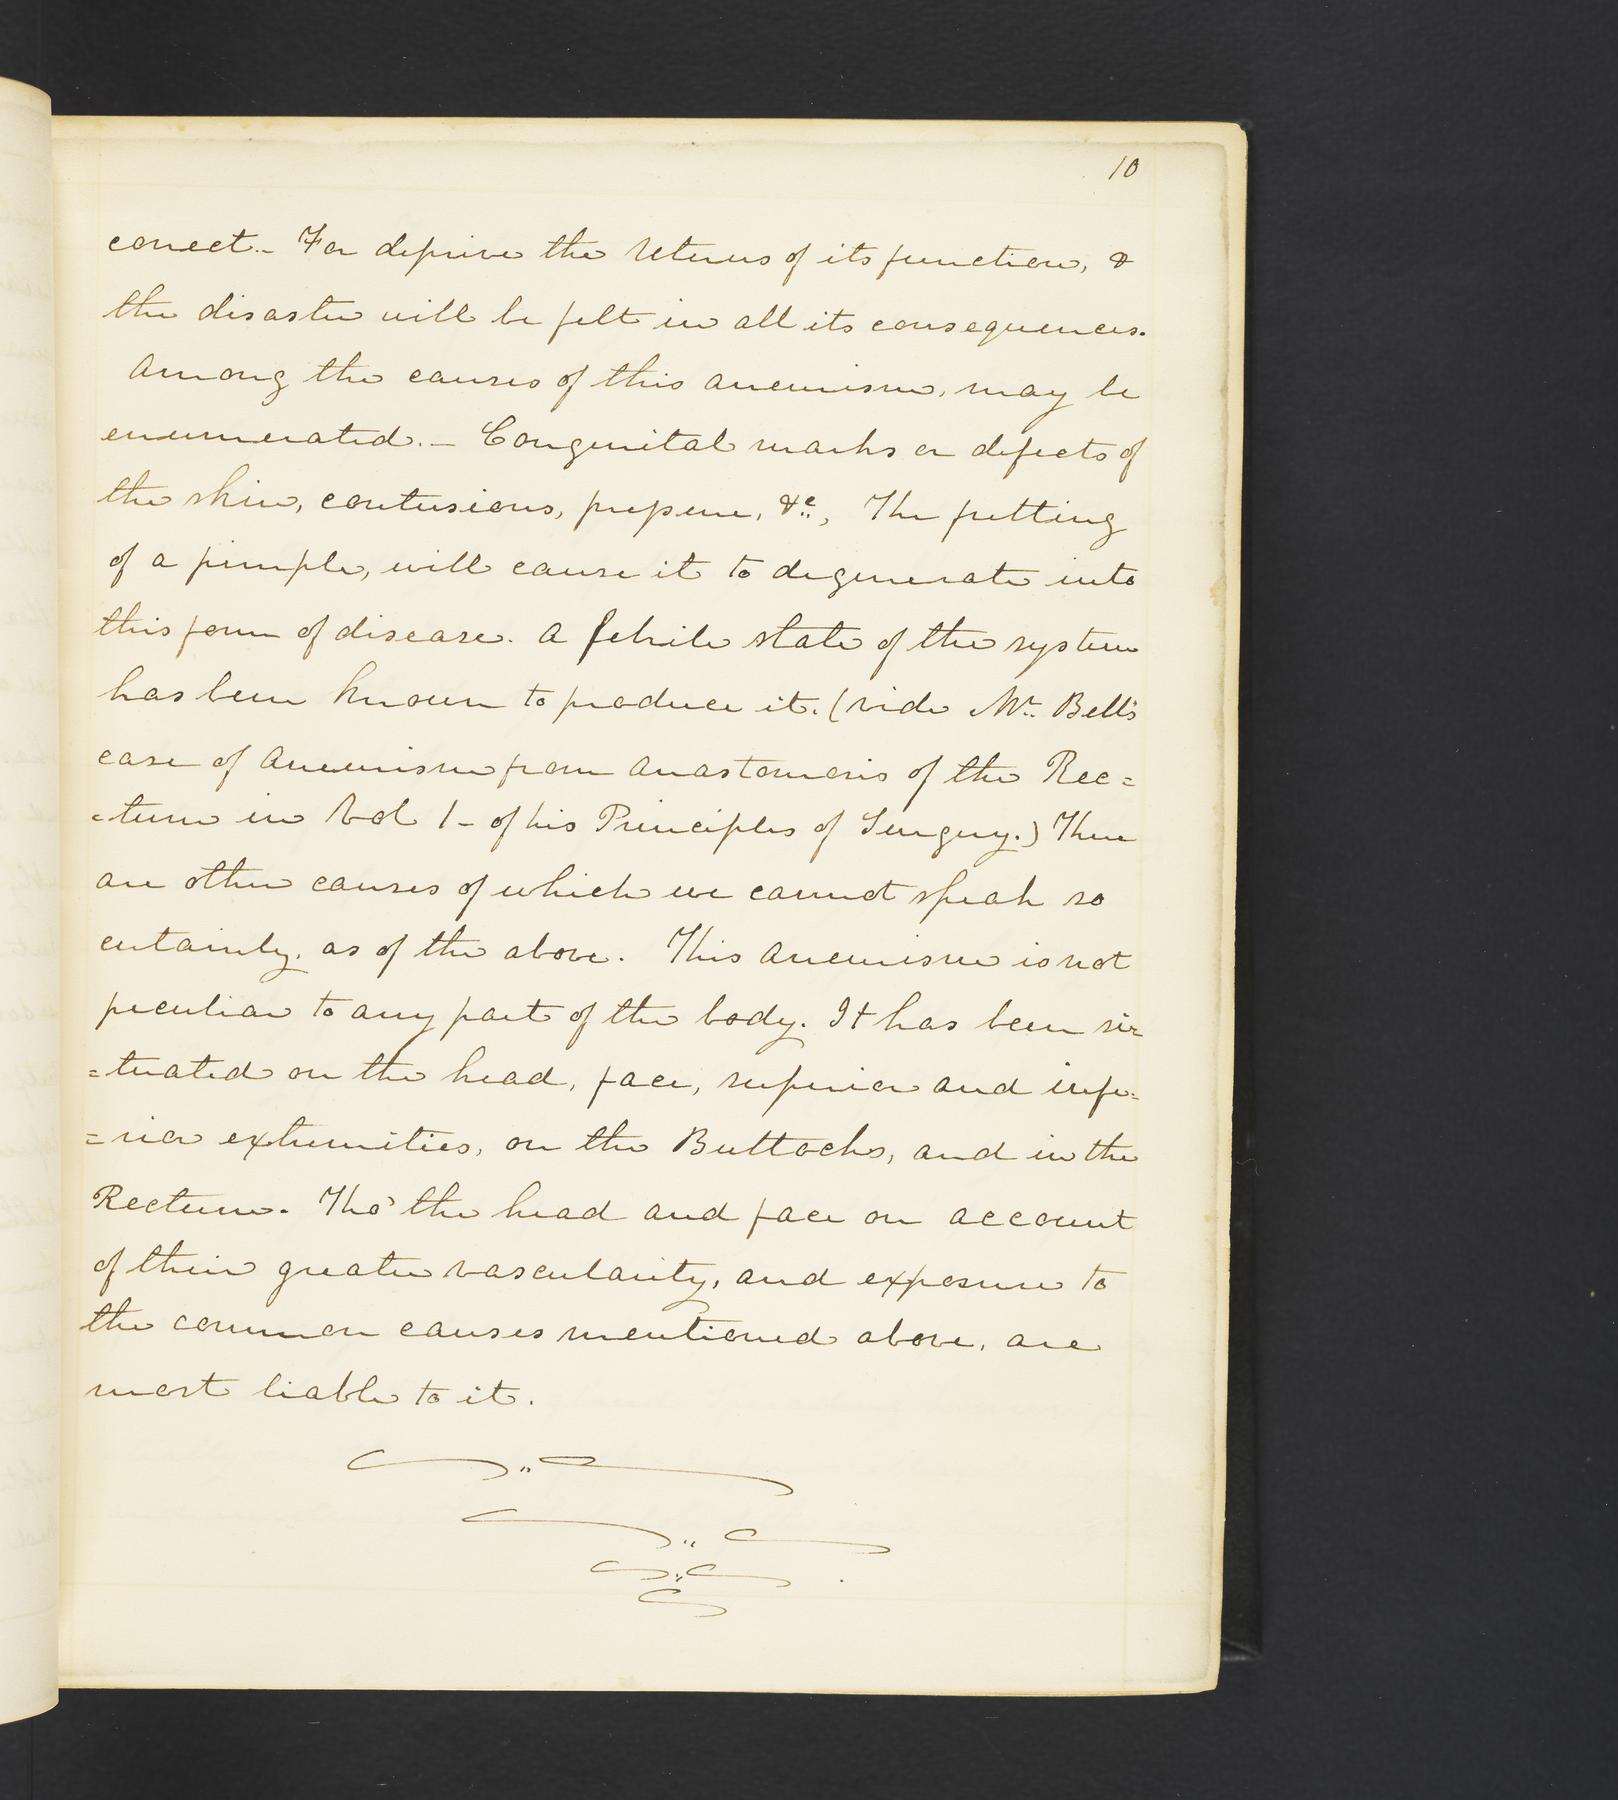 10
correct.- For deprive the Uterus of its function, &
the disaster will be felt in all its consequences.
Among the causes of this aneurism, may be
enumerated.- Congenital marks or defects of
the skin, contusions, pressure, &c., The fretting
of a pimple, will cause it to degenerate into
this form of disease. A febrile state of the system
has been known to produce it. (vide Mr. Bell's
case of Aneurism from Anastomosis of the Rec=
=tum in Vol 1- of his Principles of Surgery.) There
are other causes of which we cannot speak so
certainly, as of the above. This Aneurism is not
peculiar to any part of the body. It has been si=
=tuated on the head, face, superior and infe=
=rior extremities, on the Buttocks, and in the
Rectum. Tho' the head and face on account
of their greater vascularity, and exposure to
the common causes mentioned above, are
most liable to it.